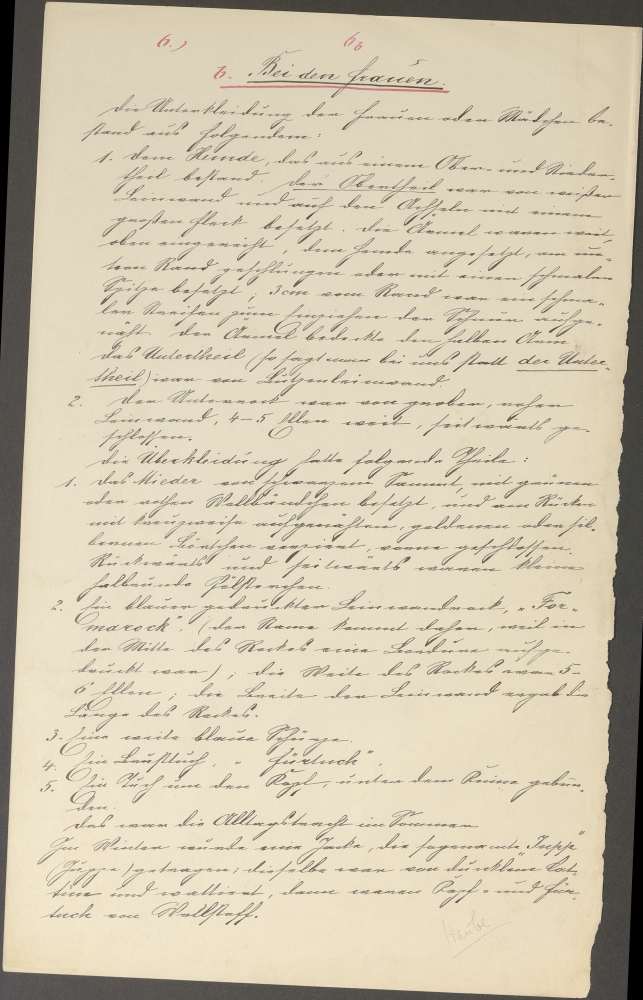 6.) 6b
b. Bei den Frauen.
Die Unterkleidung der Frauen oder Mädchen be-
stand aus folgendem:
1. dem Hemde, das aus einem Ober- und Nieder-
theil bestand. Der Obertheil war von weißer
Leinwand und auf den Achseln mit einem
großen Fleck besetzt. Die Ärmel waren weit,
oben eingereiht, dem Hemde angesetzt, am un-
tern Rand geschlungen oder mit einer schmalen
Spitze besetzt; 3 cm vom Rand war ein schma-
ler Streifen zum Einziehen der Schnur aufge-
näht. Der Ärmel bedeckte den halben Arm.
Das Untertheil (so sagt man bei uns statt der Unter-
theil) war von Leinwand.
2. Der Unterrock war von grober, roher
Leinwand, 4-5 Ellen weit, seitwärts ge-
schlossen.
Die Überkleidung hatte folgende Theile:
1. Das Mieder von schwarzem Sammt, mit grünen
oder rothen Wollbändchen besetzt, und am Rücken
mit kreuzweise aufgenähten, goldenen oder sil-
bernen Börtchen verziert, vorne geschlossen.
Rückwärts und seitwärts waren kleine
halbrunde Pölsterchen.
2. Ein blauer gedruckter Leinwandrock, "For-
marock". (Der Name kommt daher, weil in
der Mitte des Rockes eine Bordure aufge-
druckt war); die Weite des Rockes war 5-
6 Ellen; die Breite der Leinwand ergab die
Länge des Rockes.
3. Eine weite blaue Schürze.
4. Ein Brusttuch, "Fürtuch".
5. Ein Tuch um den Kopf, unter dem Kinne gebun-
den.
Das war die Alltagstracht im Sommer.
Im Winter wurde eine Jacke, die sogenannte "Juppe"
(Juppe) getragen; dieselbe war von dunklem Cat-
tun und wattiert, dann waren Kopf- und Für-
tuch von Wollstoff.